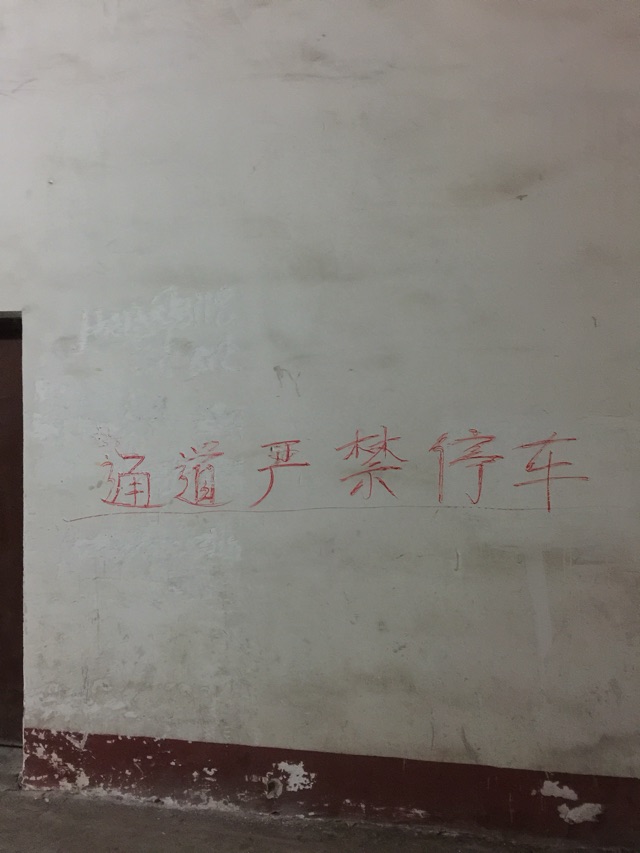 通道严禁停车